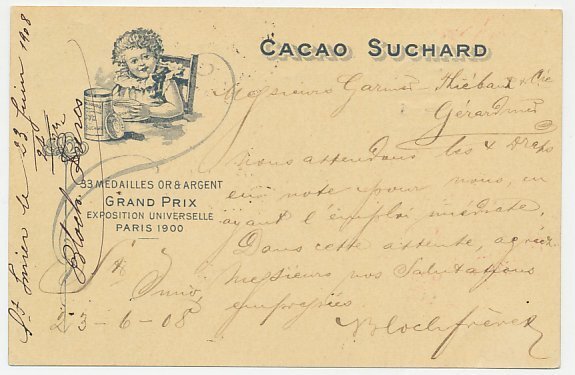 CACAO SUCHARD
Messieurs Garnier Thiébaut & Cie
Gérardmer
Nous attendons les 4 Draps
en note pour nous en
ayant l'emploi immédiate.
Dans cette attente, agréez
Messieurs nos Salutations
empressées
Bloch frères
33 MEDAILLES OR & ARGENT
GRAND PRIX
EXPOSITION UNIVERSELLE
PARIS 1900
St
Imier
23-6-08
St Imier le 23 Juin 1908
Bloch frères